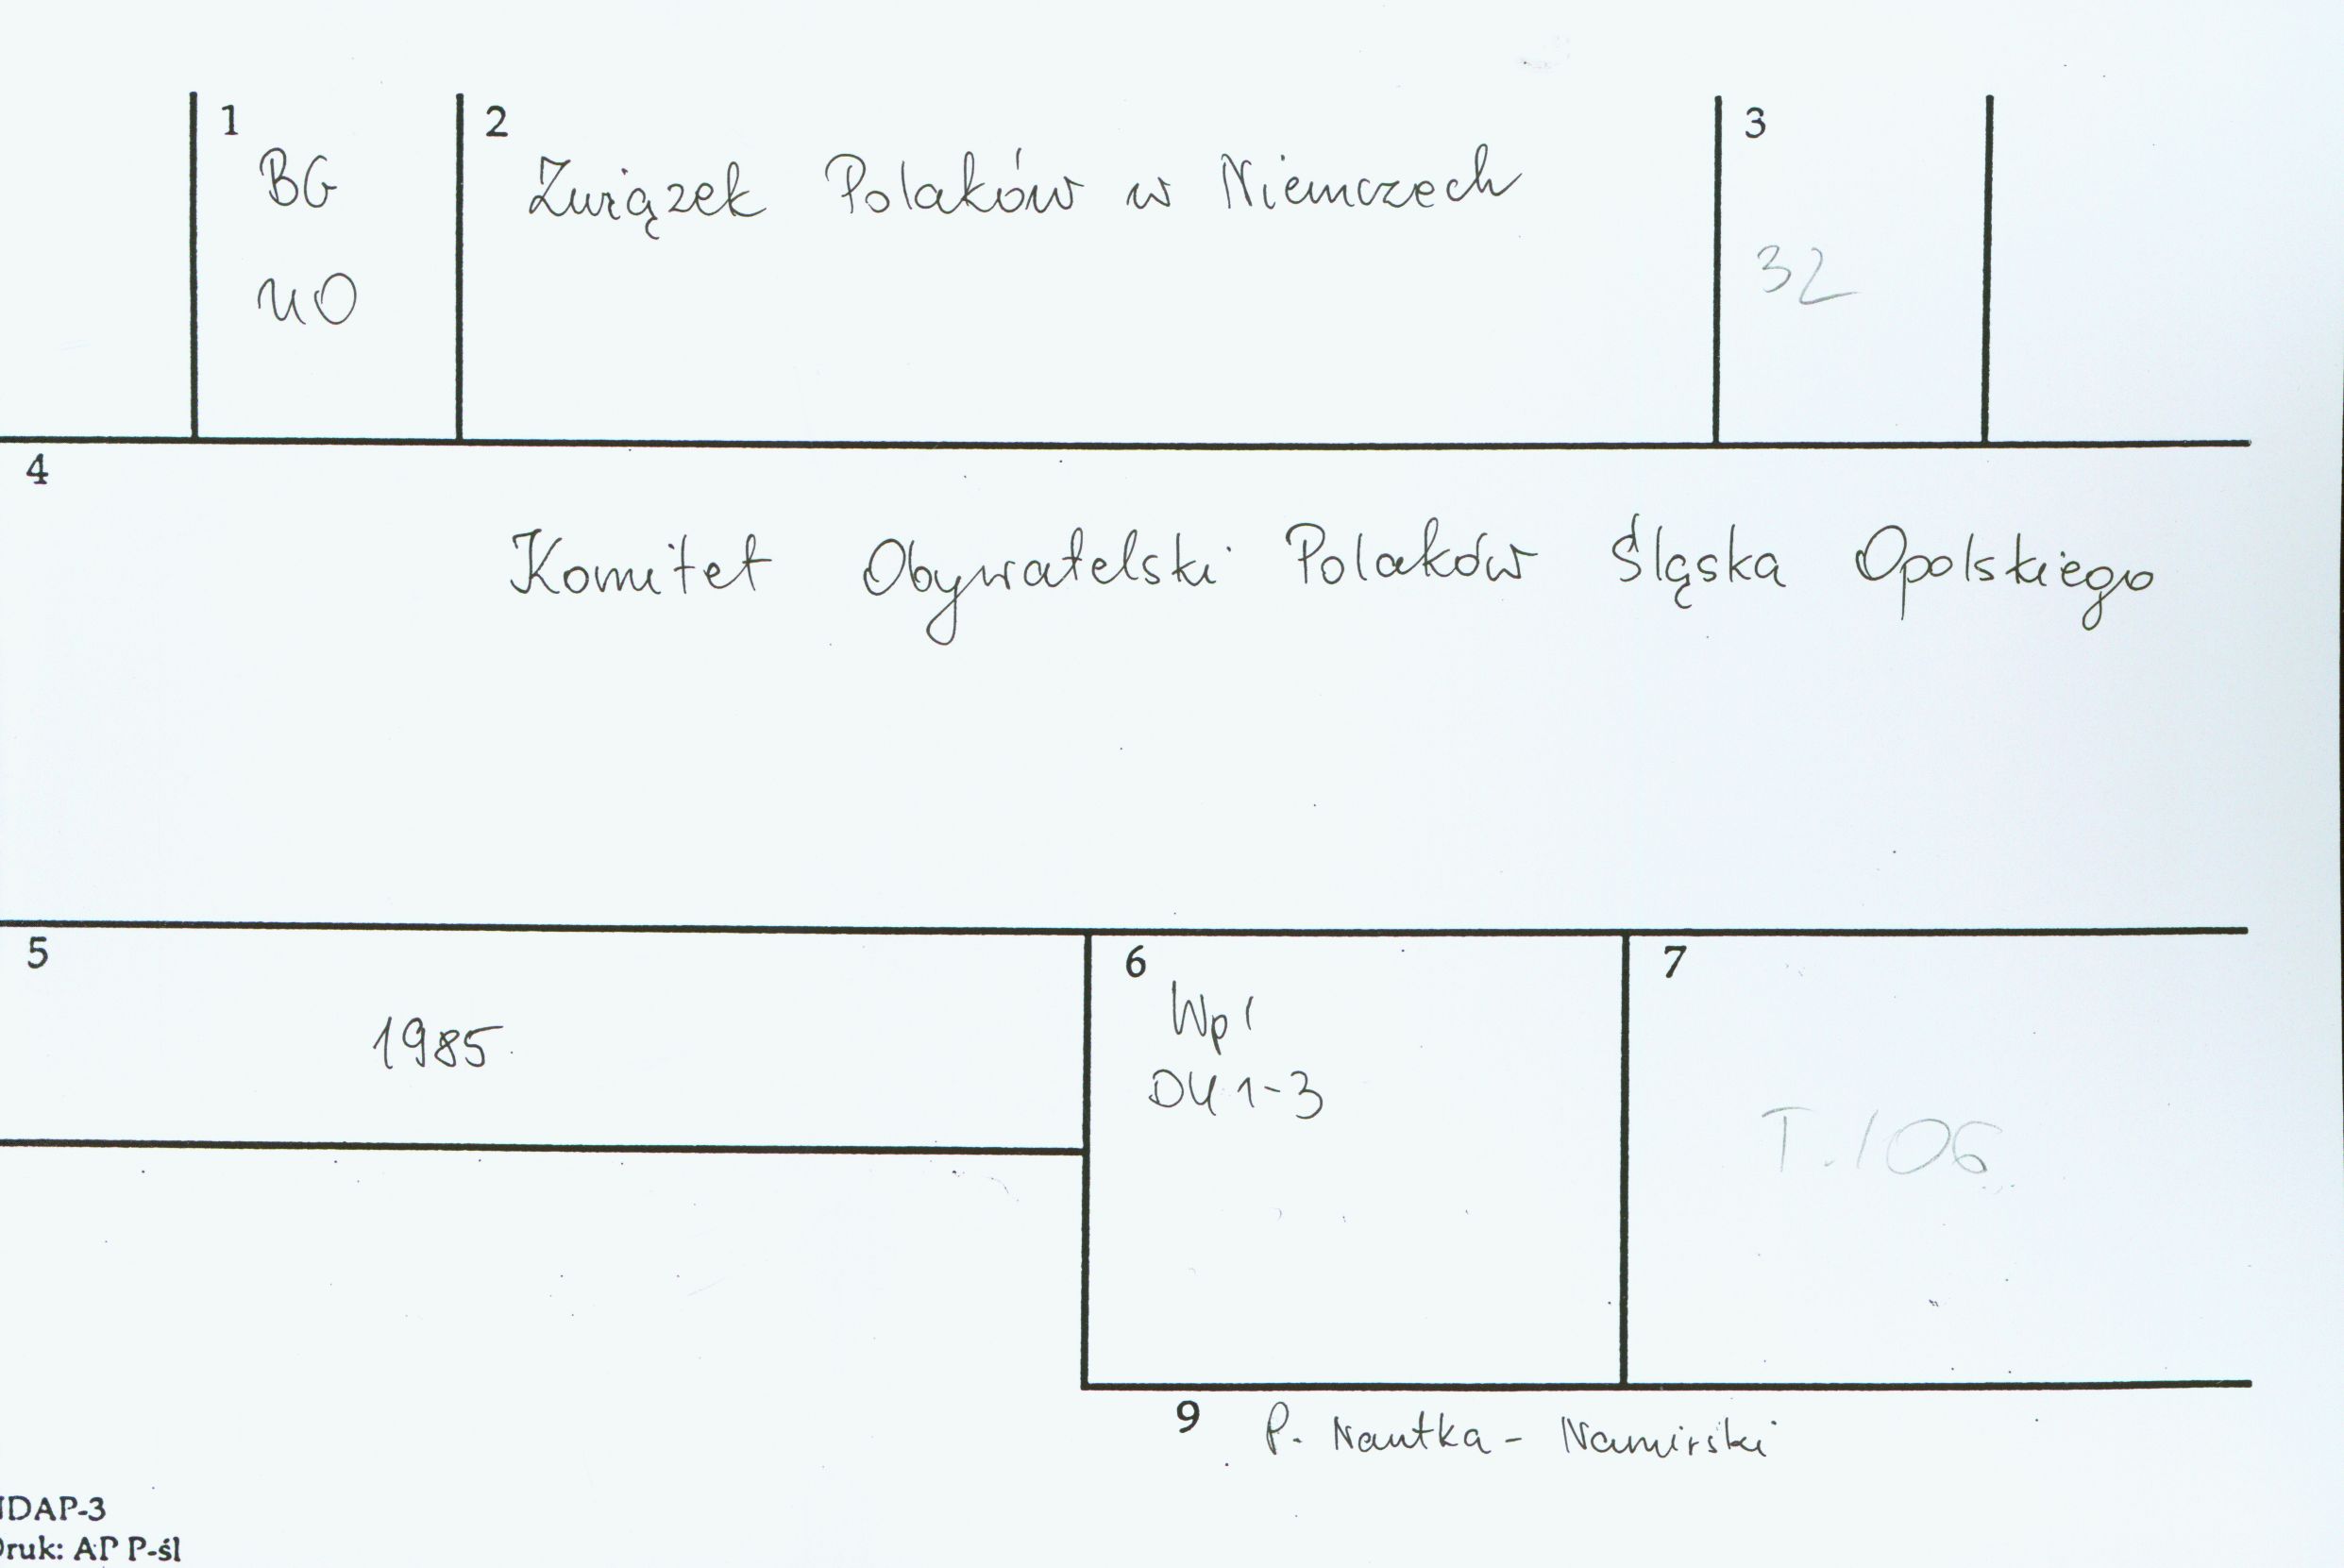 1
BG
UO
2
Związek Polaków w Niemczech
3
32
4
Komitet Obywatelski Polaków Śląska Opolskiego
5
1985
6
Wpł
DU 1-3
7
T.106
9
P. Nautka-Namirski
NDAP-3
Druk: AP P-śl